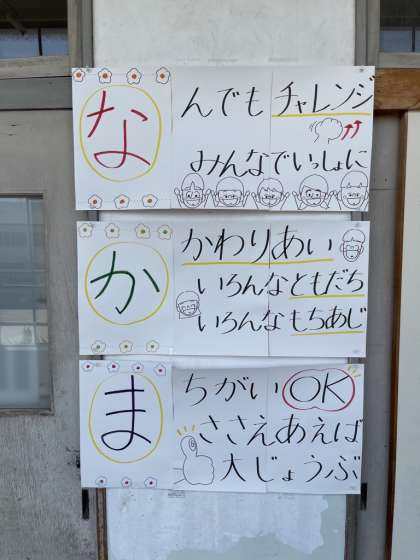 なんでもチャレンジ
みんなでいっしょに
かかわりあい
いろんなともだち
いろんなもちあじ
まちがいOK
ささえあえば
大じょうぶ